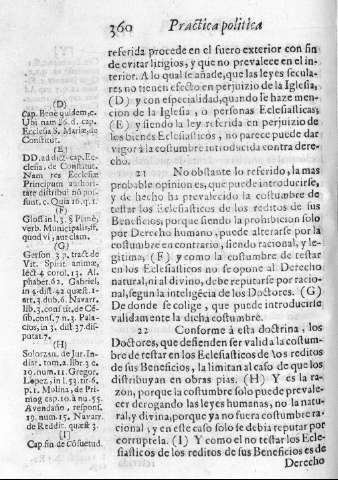 360 Practica politica
referida procede en el fuero exterior con fin
de evitar litigios, y que no prevalece en el in-
terior. A lo qual se añade, que las leyes secula-
res no tienen efecto en perjuizio de la Iglesia,
(D) y con especialidad, quando le haze men-
cion de la Iglesia, o personas Eclesiasticas;
(E) y siendo la ley referida en perjuizio de
los bienes Eclesiasticos, no parece puede dar
vigor à la costumbre introducida contra dere-
cho.
21 No obstante lo referido, la mas
probable opinion es, que puede introducirse,
y de hecho ha prevalecido la costumbre de
testar los Eclesiasticos de los reditos de sus
Beneficios, porque siendo la prohibicion solo
por Derecho humano, puede alterarse por la
costumbre en contrario, siendo racional, y le-
gitima, (F) y como la costumbre de testar
en los Eclesiasticos no se opone al Derecho
natural, ni al divino, debe reputarse por racio-
nal, segun la inteligẽcia de los Doctores. (G)
De donde se colige, que puede introducirse
validamente la dicha costumbre.
22 Conforme à esta doctrina, los
Doctores, que defienden ser valida la costum-
bre de testar en los Eclesiasticos de los reditos
de sus Beneficios, la limitan al caso de que los
distribuyan en obras pias. (H) Y es la ra-
zon, porque la costumbre solo puede prevale-
cer derogando las leyes humanas, no la natu-
ral, y divina, porque ya no fuera costumbre ra-
cional, y en este caso solo se debia reputar por
corruptela. (I) Y como el no testar los Ecle-
siasticos de los reditos de sus Beneficios es de
Derecho
(D)
Cap. Benè quidem, c.
Ubi nam 96. d. cap.
Ecclesia S. Mariæ, de
Constitut.
(E)
DD. ad dict. cap. Ec-
clesia, de Constitut.
Nam res Ecclesiæ
Principum authori-
tate distribui nò pos-
sunt, c. Quia 16. q. 1.
(F)
Gloss in l. 3. § Plinè,
verb. Municipalis, ff.
quod vi, aut clam.
(G)
Gerson 3 p. tract. de
Vit. Spirit. animæ,
lect 4 corol. 13. Al-
phaber. 62. Gabriel,
in 4. dist. 42 quæst. 1.
art. 3. dub. 6. Navarr.
lib. 3. consit. de Cē-
sib. conf. 7. n 3. Pala-
cios, in 3. dist 37 dis-
putat. 7.
(H)
Solorzan. de Jur. In-
dist. tom. 2. lib. 3 c.
20. num. 11. Gregor.
Lopez, in l. 53. tit 6.
p. 1. Molina, de Pri-
mog cap. 10. à nu. 55.
Avendaño, respons.
19. num. 15. Navarr.
de Reddit. quæst 3.
(I)
Cap. fin de Cōsuetud.